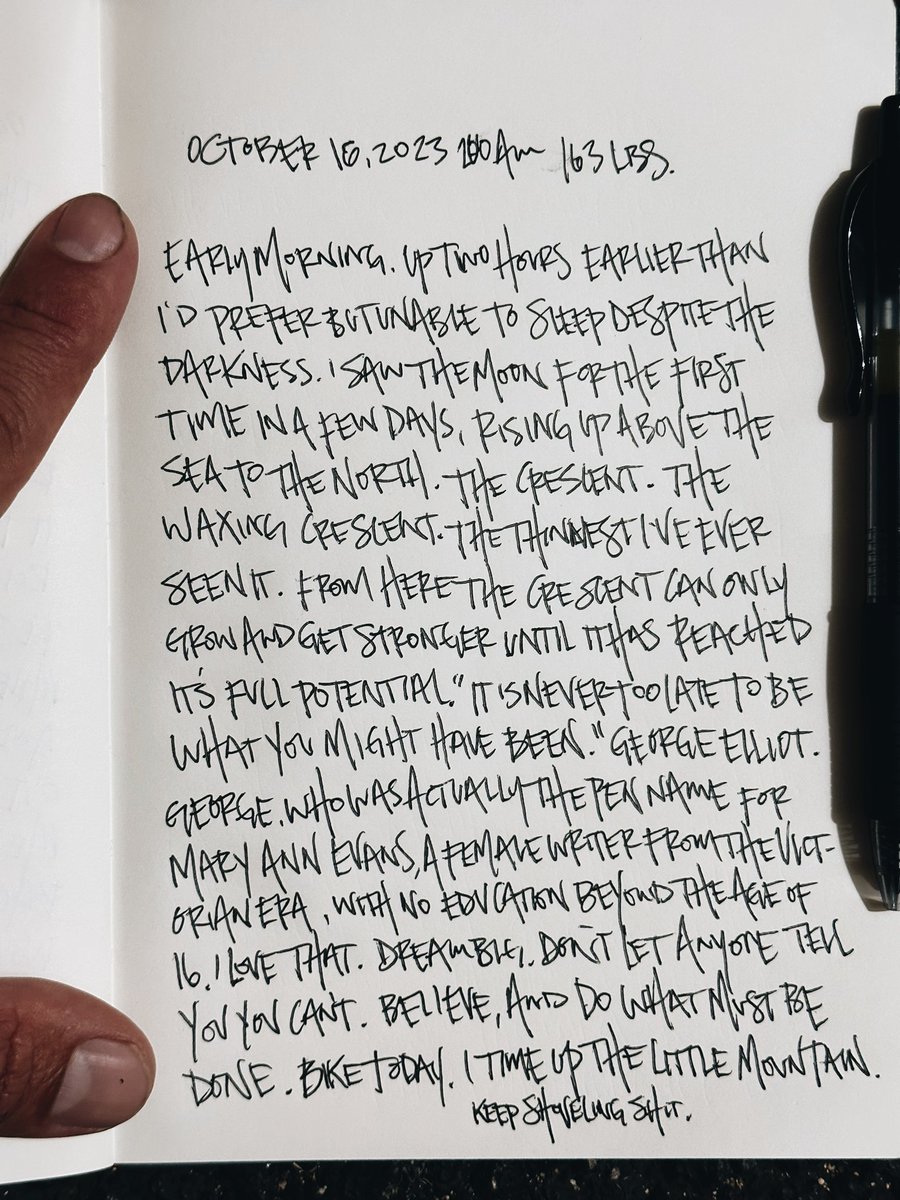 OCTOBER 16, 2023 AM 163 LBS.
EARLY MORNING. UP TWO HOURS EARLIER THAN
I'D PREFER BUT UNABLE TO SLEEP DESPITE THE
DARKNESS. I SAW THE MOON FOR THE FIRST
TIME IN A FEW DAYS, RISING UP ABOVE THE
SEA TO THE NORTH. THE CRESCENT. THE
WAXING CRESCENT. THE THINNEST I'VE EVER
SEEN IT. FROM HERE THE CRESCENT CAN ONLY
GROW AND GET STRONGER UNTIL IT HAS REACHED
IT'S FULL POTENTIAL. "IT IS NEVER TOO LATE TO BE
WHAT YOU MIGHT HAVE BEEN." GEORGE ELLIOT.
GEORGE, WHO WAS ACTUALLY THE PEN NAME FOR
MARY ANN EVANS, A FEMALE WRITER FROM THE VICT-
ORIAN ERA, WITH NO EDUCATION BEYOND THE AGE OF
16. I LOVE THAT. DREAM BIG. DON'T LET ANYONE TELL
YOU YOU CAN'T. BELIEVE, AND DO WHAT MUST BE
DONE. BIKE TODAY. 1 TIME UP THE LITTLE MOUNTAIN.
KEEP SHOVELING SHIT.